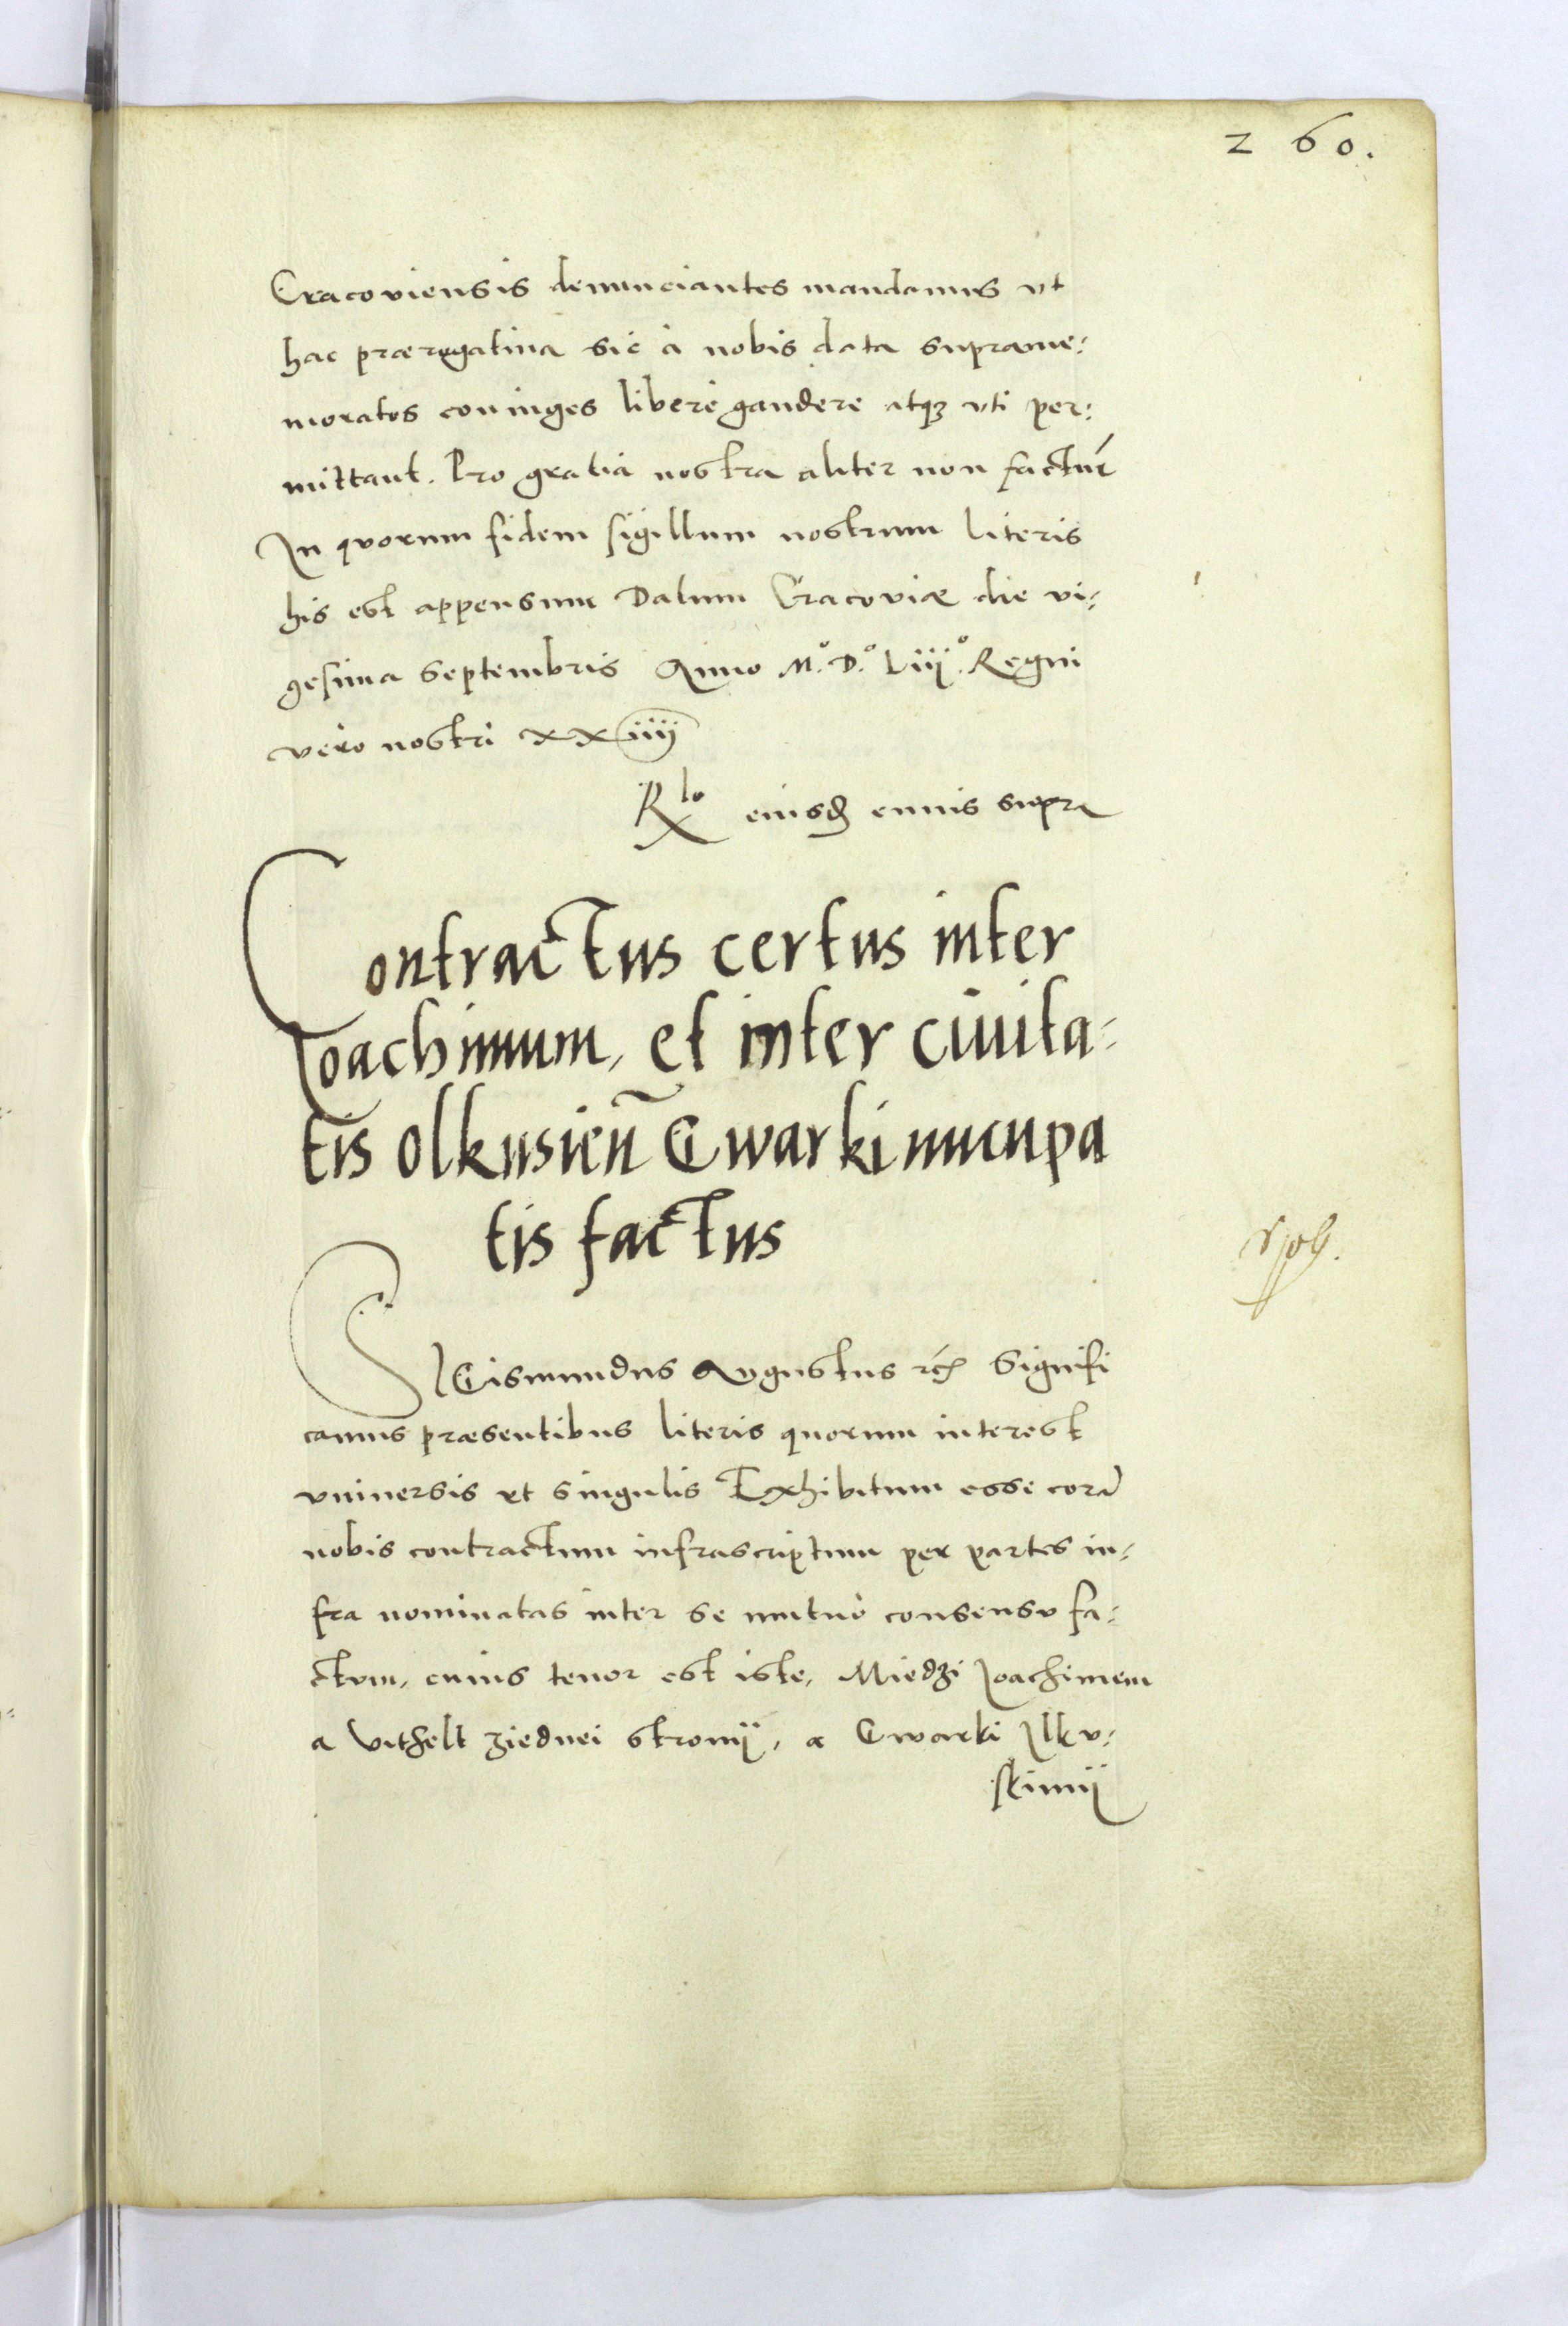 260.
Cracoviensis denunciantes mandamus vt
hac prærogatiua sic à nobis data suprame:
moratos coniuges liberè gaudere atqʒ vti per:
mittant. Pro gratia nostra aliter non facturi
In quorum fidem sigillum nostrum literis
his est appensum Datum Cracoviæ die vi:
gesima Septembris Anno M.° D.° Liij.° Regni
vero nostri xxiiij
Rlo eiusdē cuius supra
Contractus certus inter
Ioachimum, et inter ciuita:
tis Olkusien̄ Gwarki nucupa
tis factus
SIGismundus Augustus rc̄ Signifi
camus præsentibus literis quorum interest
vniuersis et singulis Exhibitum esse corā
nobis contractum infrascriptum per partes in:
fra nominatas inter se mutuò consensu fa:
ctum, cuius tenor est iste, Miedzi Ioachimem
a Vithelt ziednei stronij, a Gwarki Ilku:
skimij